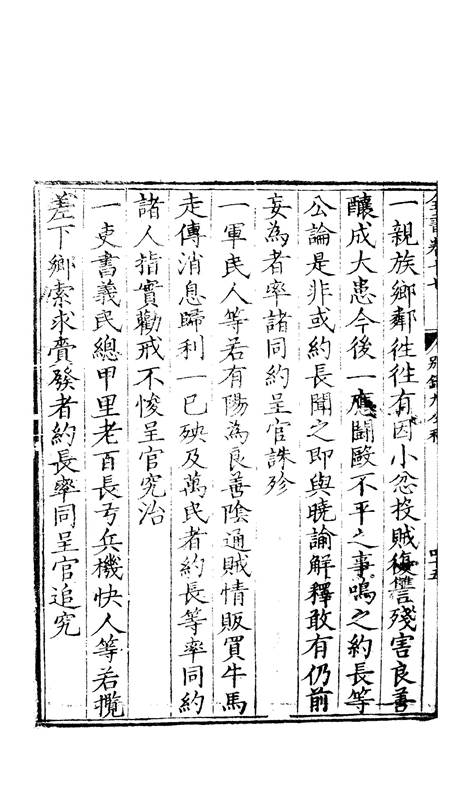 全書卷十七 別錄九公移 四五
一親族鄉鄰徃徃有因小忿投賊復讐殘害良善
釀成大患今後一應鬪毆不平之事鳴之約長等
公論是非或約長聞之即與曉諭解釋敢有仍前
妄為者率諸同約呈官誅殄
一軍民人等若有陽為良善陰通賊情販買牛馬
走傳消息歸利一已殃及萬民者約長等率同約
諸人指實勸戒不悛呈官究治
一吏書義民總甲里老百長弓兵機快人等若攬
差下鄉索求賫發者約長率同呈官追究